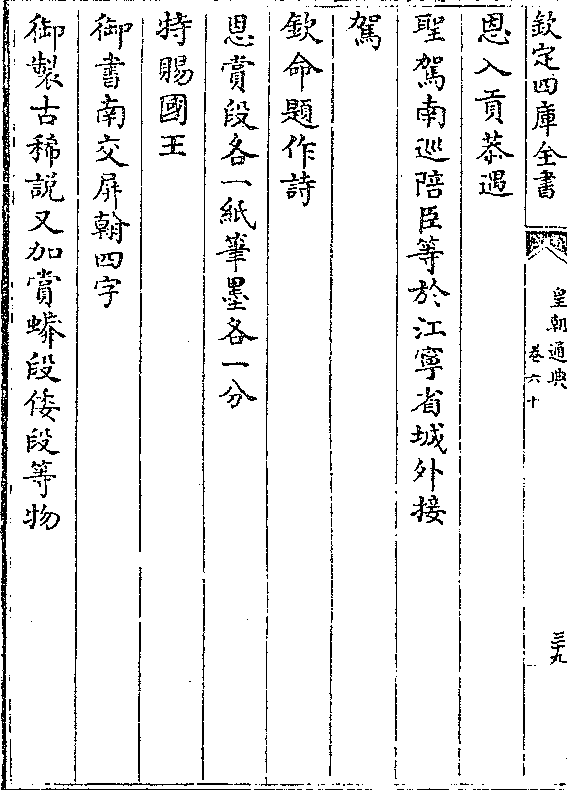 欽定四庫全書
皇朝通典
卷六十
三十九
恩入貢恭遇
聖駕南巡陪臣等於江寧省城外接
駕
欽命題作詩
恩賞段各一紙筆墨各一分
特賜國王
御書南交屏翰四字
御製古稀說又加賞蟒段倭段等物